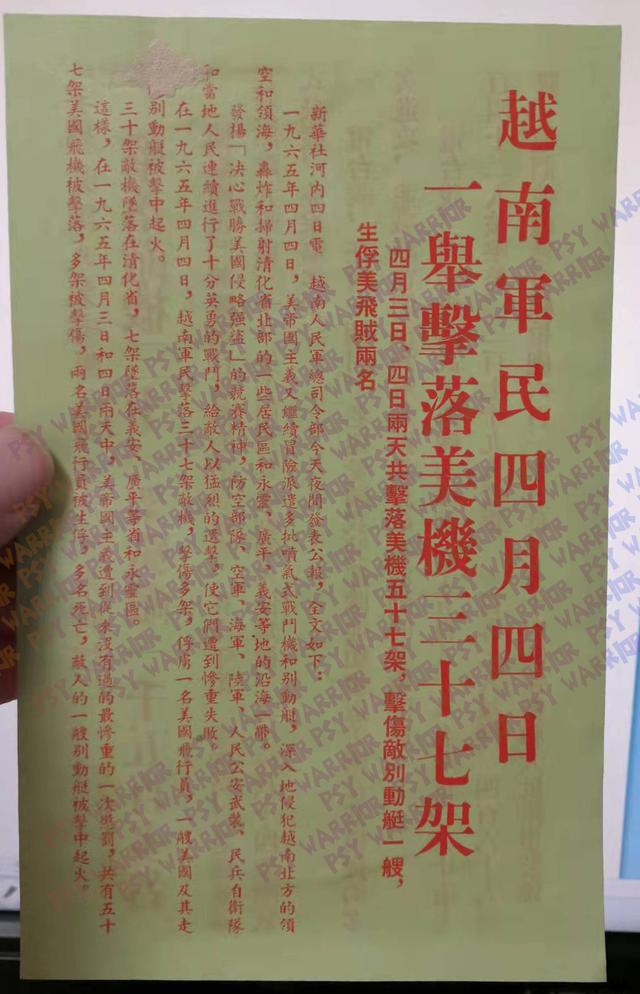 越南軍民四月四日
一舉擊落美機三十七架
四月三日、四日兩天共擊落美機五十七架，擊傷敵別動艇一艘，
生俘美飛賊兩名
新華社河內四日電　越南人民軍總司令部今天夜間發表公報，全文如下：
一九六五年四月四日，美帝國主義又繼續冒險派遣多批噴氣式戰鬥機和別動艇，深入地侵犯越南北方的領
空和領海，轟炸和掃射清化省北部的一些居民區和永靈、廣平、義安等地的沿海一帶。
發揚「決心戰勝美國侵略强盜」的競賽精神，防空部隊、空軍、海軍、陸軍、人民公安武裝、民兵自衛隊
和當地人民連續進行了十分英勇的戰鬥，給敵人以猛烈的還擊，使它們遭到慘重失敗。
在一九六五年四月四日，越南軍民擊落三十七架敵機，擊傷多架，俘虜一名美國飛行員，一艘美國及其走
別動艇被擊中起火。
三十架敵機墜落在清化省，七架墜落在義安、廣平等省和永靈區。
這樣，在一九六五年四月三日和四日兩天中，美帝國主義遭到從來沒有過的最慘重的一次懲罰，共有五十
七架美國飛機被擊落，多架被擊傷，兩名美國飛行員被生俘，多名死亡，敵人的一艘別動艇被擊中起火。
PSY WARRIOR